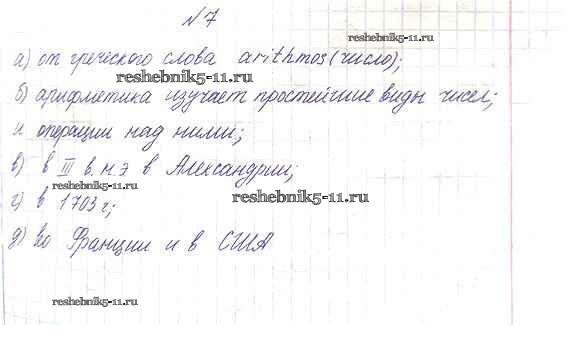 № 7
а) от греческого слова arithmos (число);
reshebnik5-11.ru
б) арифметика изучает простейшие виды чисел;
и операции над ними;
в) в III в. н.э в Александрии;
reshebnik5-11.ru
reshebnik5-11.ru
г) в 1703 г;
д) во Франции и в США
reshebnik5-11.ru